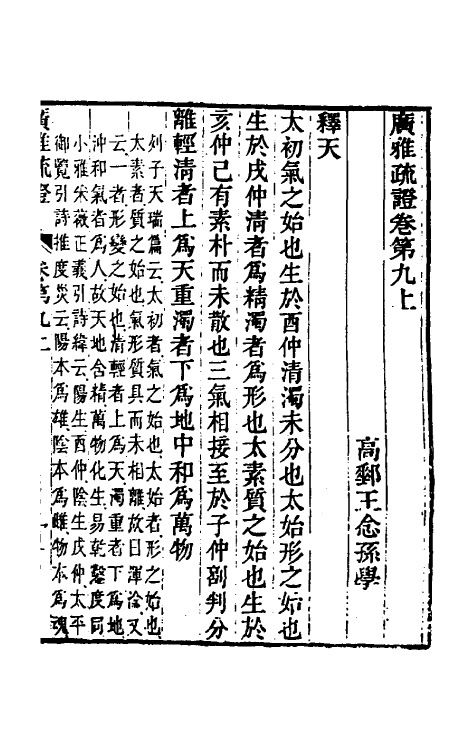 廣雅疏證卷第九上
高郵王念孫學
釋天
太初氣之始也生於酉仲清濁未分也太始形之始也
生於戌仲清者為精濁者為形也太素質之始也生於
亥仲已有素朴而未散也三氣相接至於子仲剖判分
離輕清者上為天重濁者下為地中和為萬物
列子天瑞篇云太初者氣之始也太始者形之始也
太素者質之始也氣形質具而未相離故曰渾淪又
云一者形變之始也清輕者上為天濁重者下為地
沖和氣者為人故天地含精萬物化生易乾鑿度同
小雅采薇正義引詩緯云陽生酉仲陰生戌仲太平
御覽引詩推度災云陽本為雄陰本為雌物本為魂
廣雅疏證 卷第九上